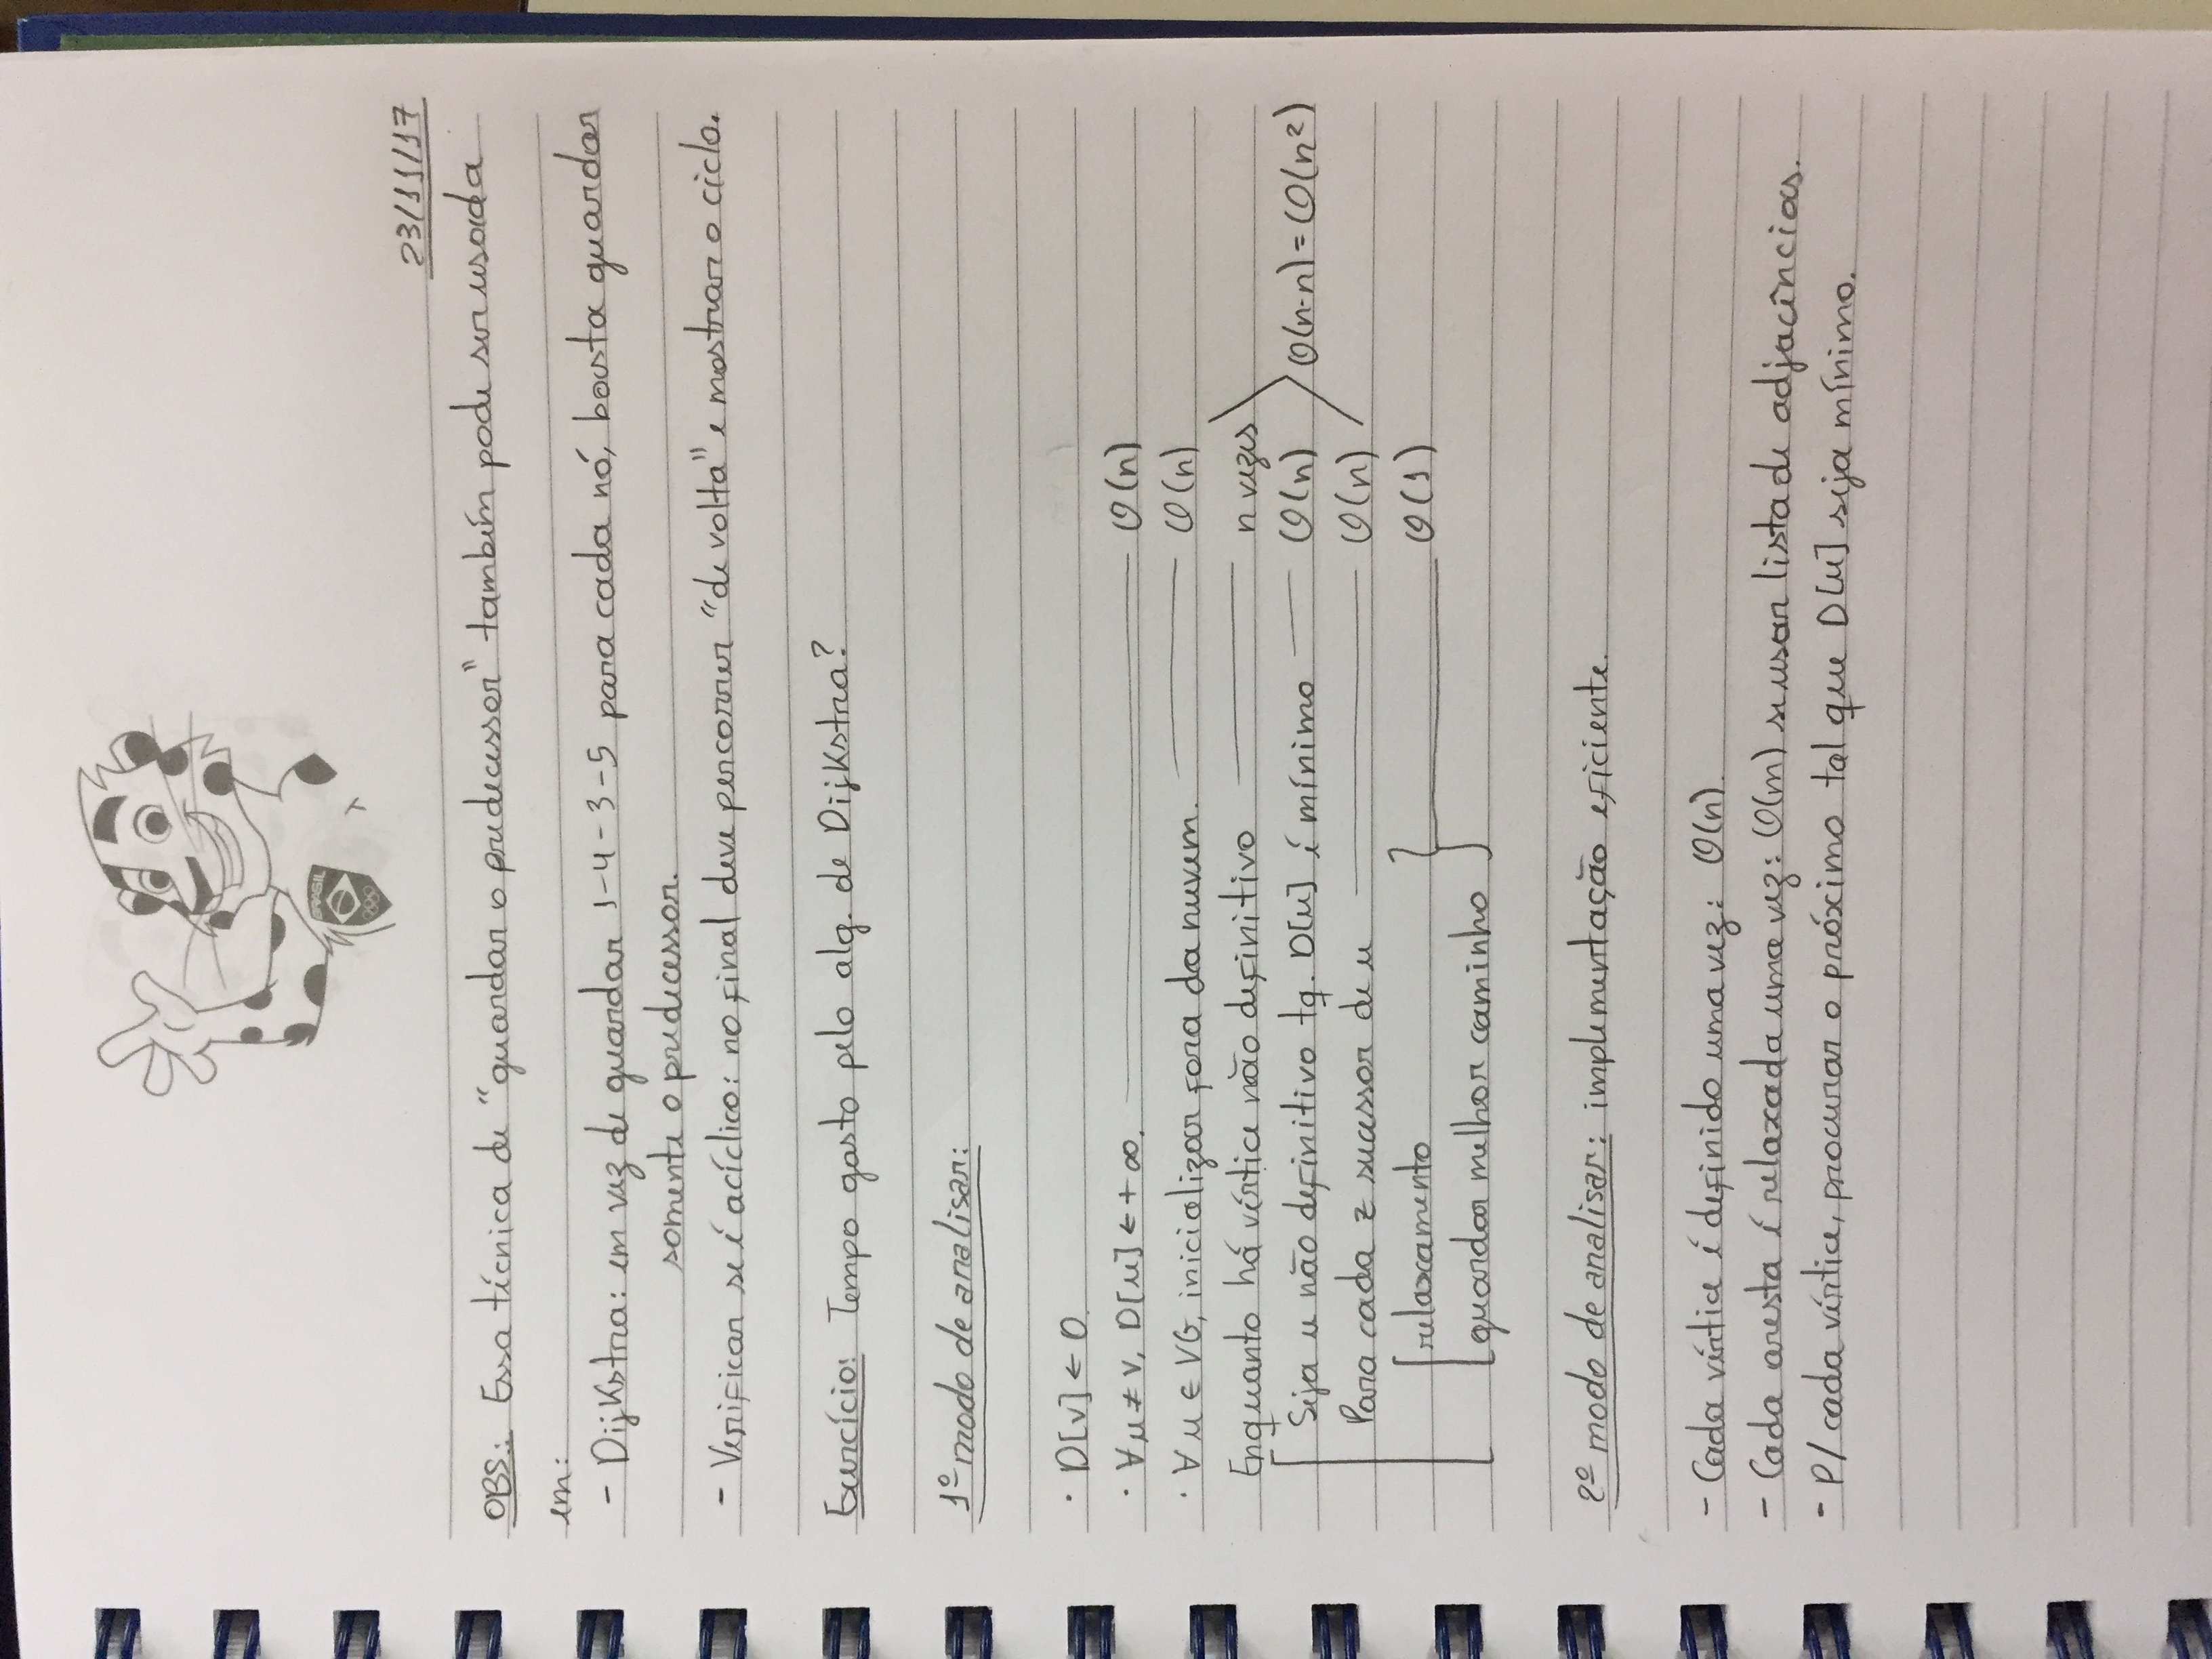 BRASIL
23/11/17
OBS.: Essa técnica de "guardar o predecessor" também pode ser usada
em:
- Dijkstra: em vez de guardar 1-4-3-5 para cada nó, basta guardar
somente o predecessor.
- Verificar se é acíclico: no final deve percorrer "de volta" e mostrar o ciclo.
Exercício: Tempo gasto pelo alg. de Dijkstra?
1º modo de analisar:
· D[v] ← 0.
· ∀u ≠ v, D[u] ← +∞. ——— O(n)
· ∀u ∈ VG, inicializar fora da nuvem. ——— O(n)
Enquanto há vértice não definitivo ——— n vezes
Seja u não definitivo tq. D[u] é mínimo ——— O(n) O(n·n) = O(n²)
Para cada z sucessor de u ——— O(n)
[relaxamento } ——— O(1)
guardar melhor caminho
2º modo de analisar: implementação eficiente.
- Cada vértice é definido uma vez: O(n).
- Cada aresta é relaxada uma vez: O(m) se usar lista de adjacências.
- P/ cada vértice, procurar o próximo tal que D[u] seja mínimo.